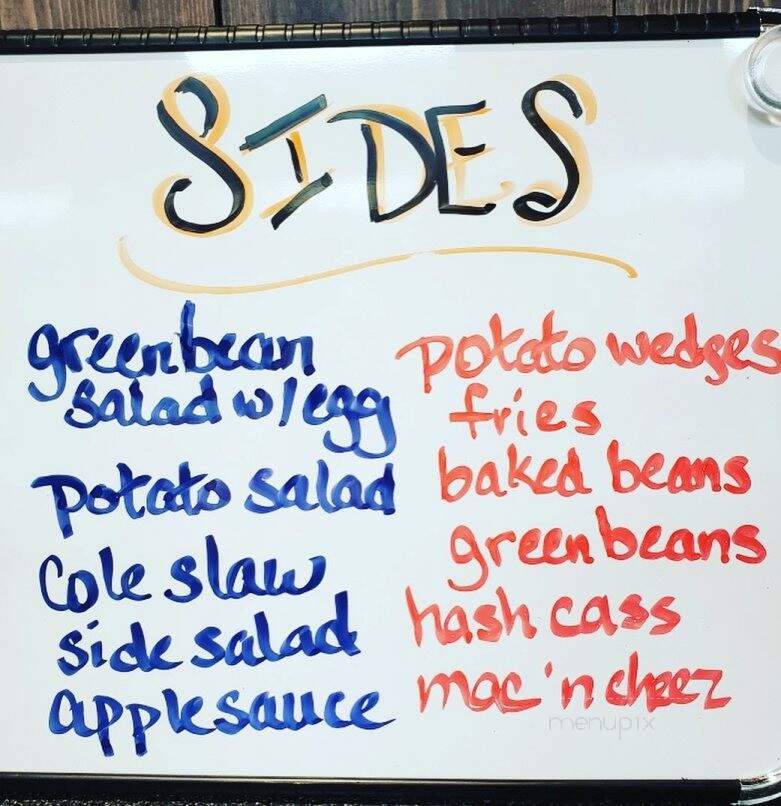 SIDES
greenbean
salad w/egg
potato salad
Cole slaw
side salad
applesauce
potato wedges
fries
baked beans
green beans
hash cass
mac 'n cheez
menupix